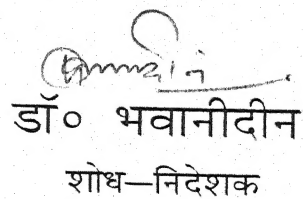 डॉ० भवानीदीन
शोध–निदेशक